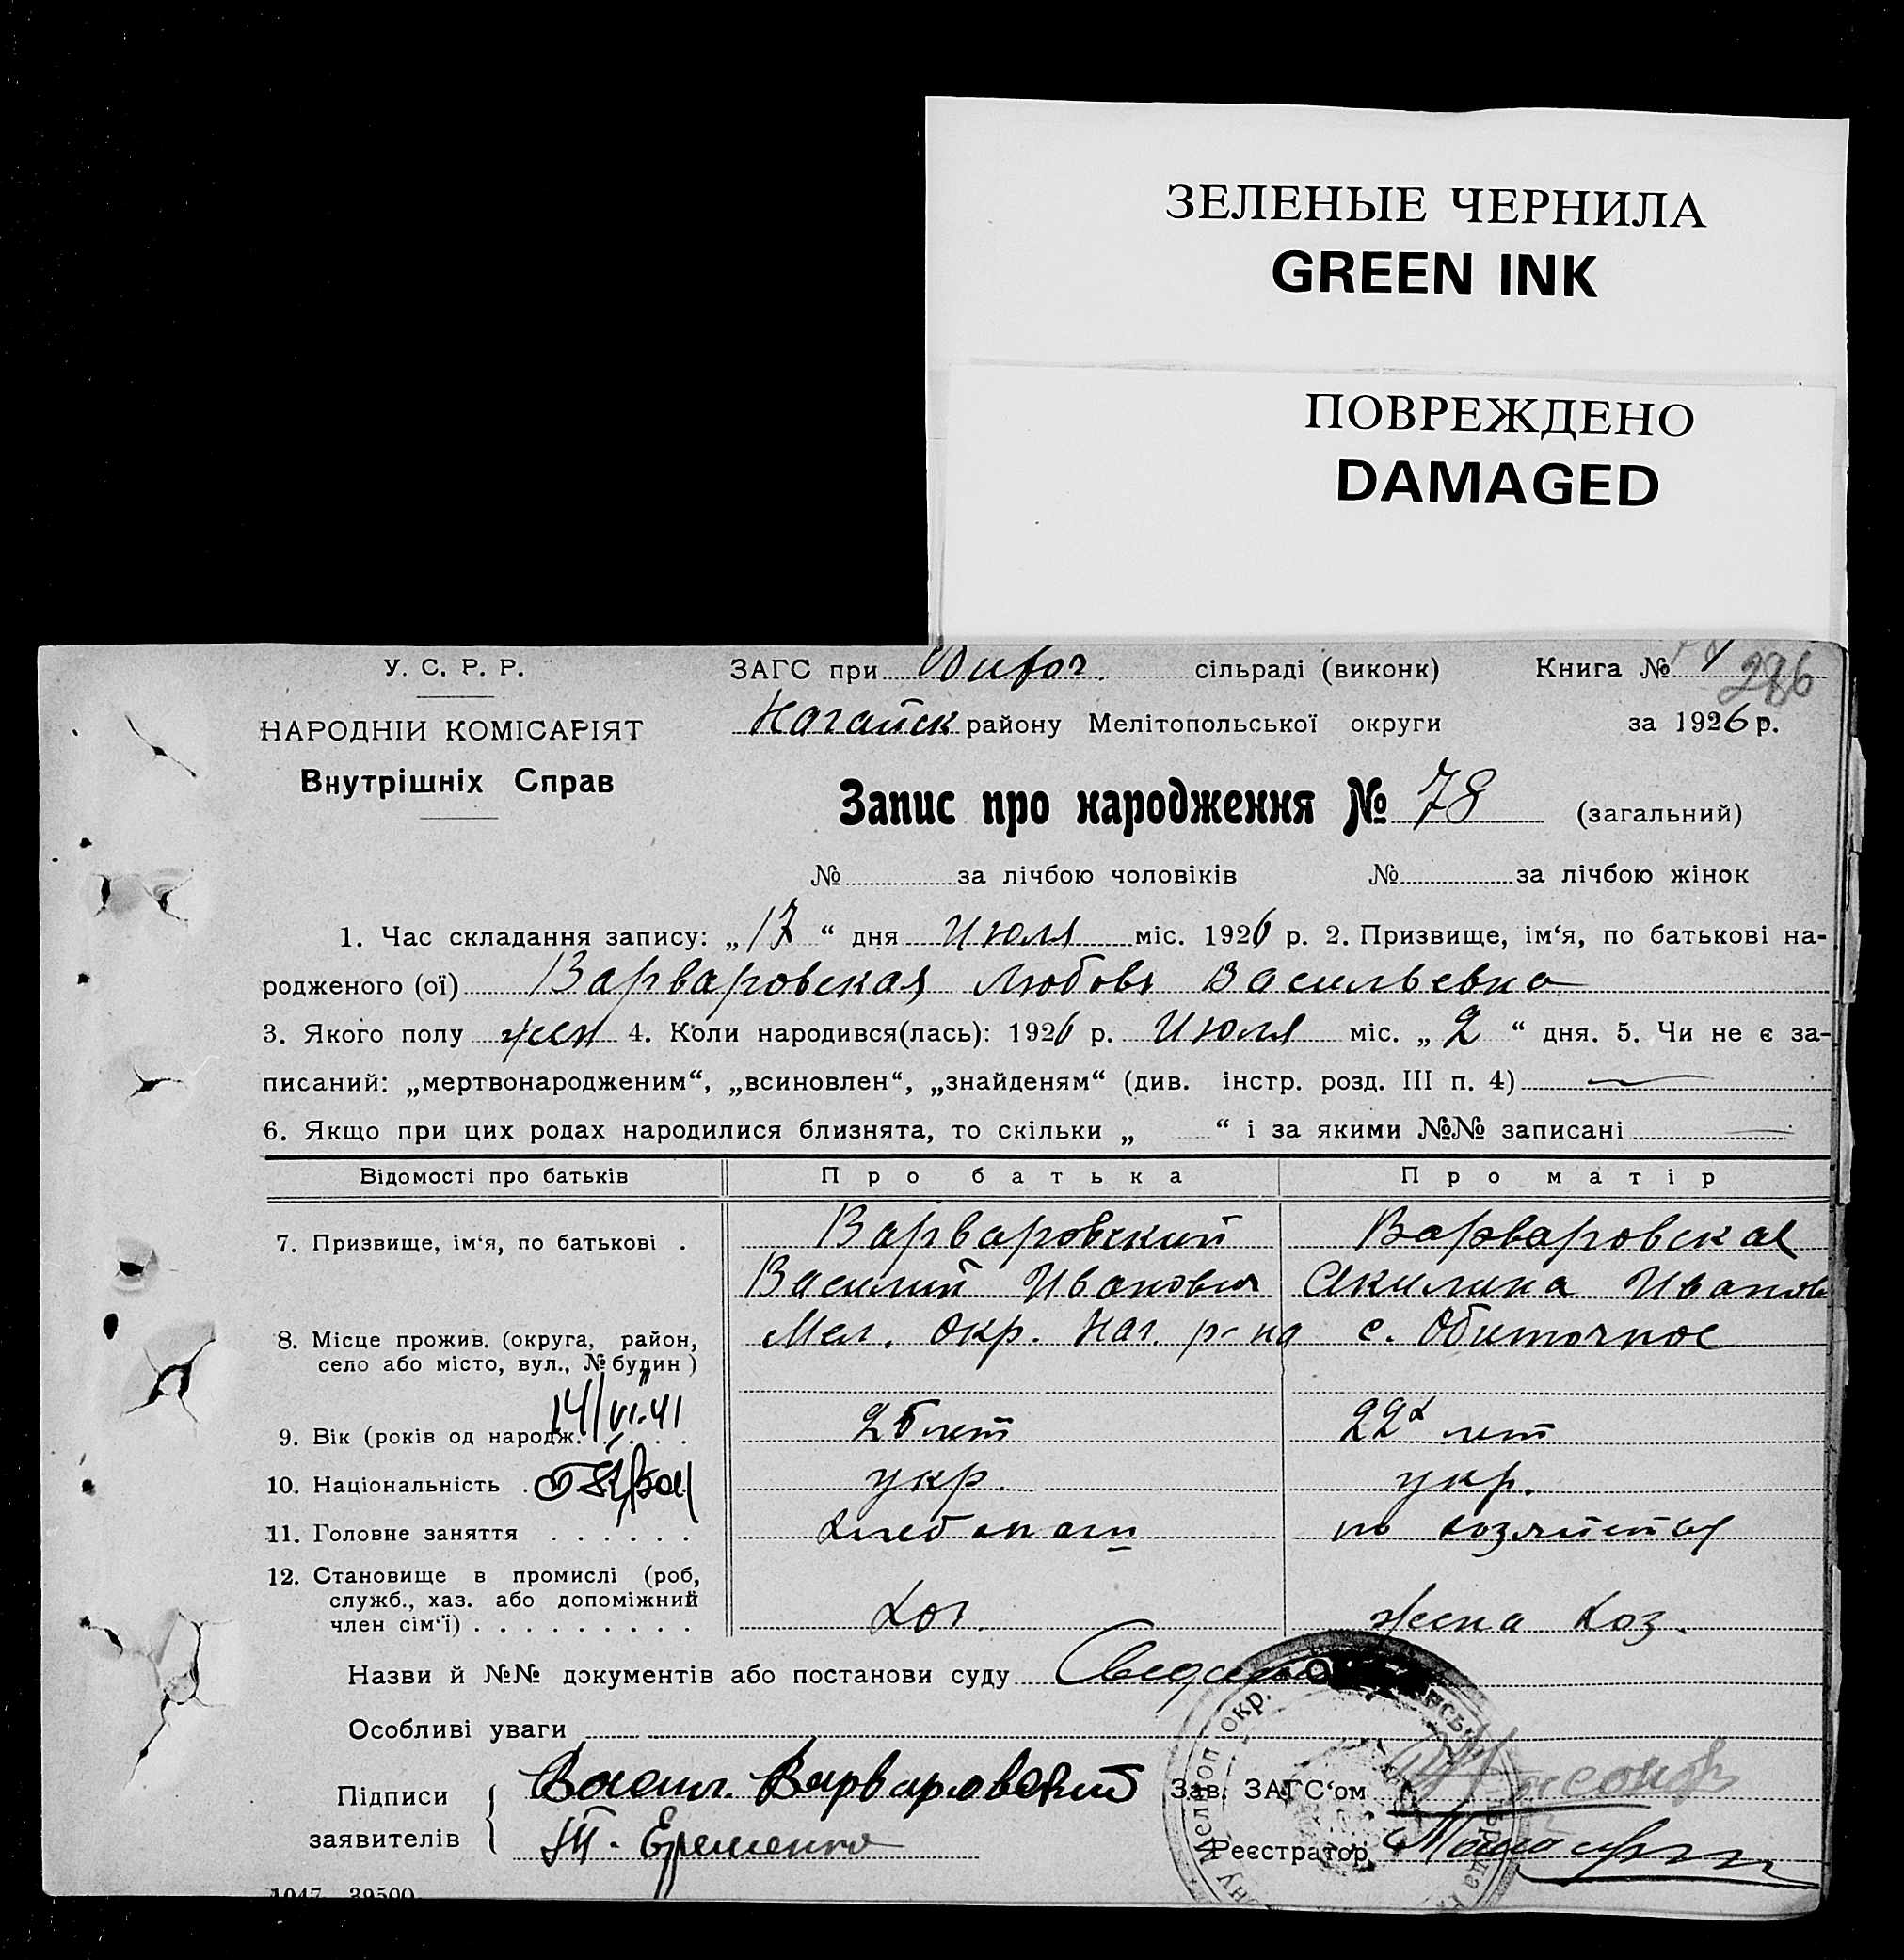 ЗЕЛЕНЫЕ ЧЕРНИЛА
GREEN INK
ПОВРЕЖДЕНО
DAMAGED
У. С. Р. Р.
НАРОДНІЙ КОМІСАРІЯТ
Внутрішніх Справ
ЗАГС при сільраді (виконк) Книга №
286
Нагайск району Мелітопольської округи за 1926 р.
Запис про народження № 78 (загальний)
№ за лічбою чоловіків № за лічбою жінок
1. Час складання запису: „17“ дня Июля міс. 1926 р. 2. Призвище, ім‘я, по батькові на-
родженого (ої) Варваровская Любовь Васильевна
3. Якого полу жен 4. Коли народився(лась): 1926 р. Июля міс. „2“ дня. 5. Чи не є за-
писаний: „мертвонародженим“, „всиновлен“, „знайденям“ (див. інстр. розд. III п. 4)
6. Якщо при цих родах народилися близнята, то скільки „ “ і за якими №№ записані
Відомості про батьків Про батька Про матір
7. Призвище, ім‘я, по батькові . Варваровский Варваровская
Василий Иванович Акилина Иванов
8. Місце прожив. (округа, район, Мел. окр. Наг. р-на с. Обиточное
село або місто, вул., № будин)
14/VI-41
9. Вік (років од народж. лет 22х лет
10. Національність . укр. укр.
11. Головне заняття . . . . . . хлебопаш по хозяйству
12. Становище в промислі (роб,
служб., хаз. або допоміжний
член сім‘ї) . . . . . . . . . хоз. жена хоз.
Назви й №№ документів або постанови суду
Особливі уваги
Підписи
заявителів
Васил. Варваровский Зав. ЗАГС‘ом
Т. Еременко Реєстратор
1047 39500